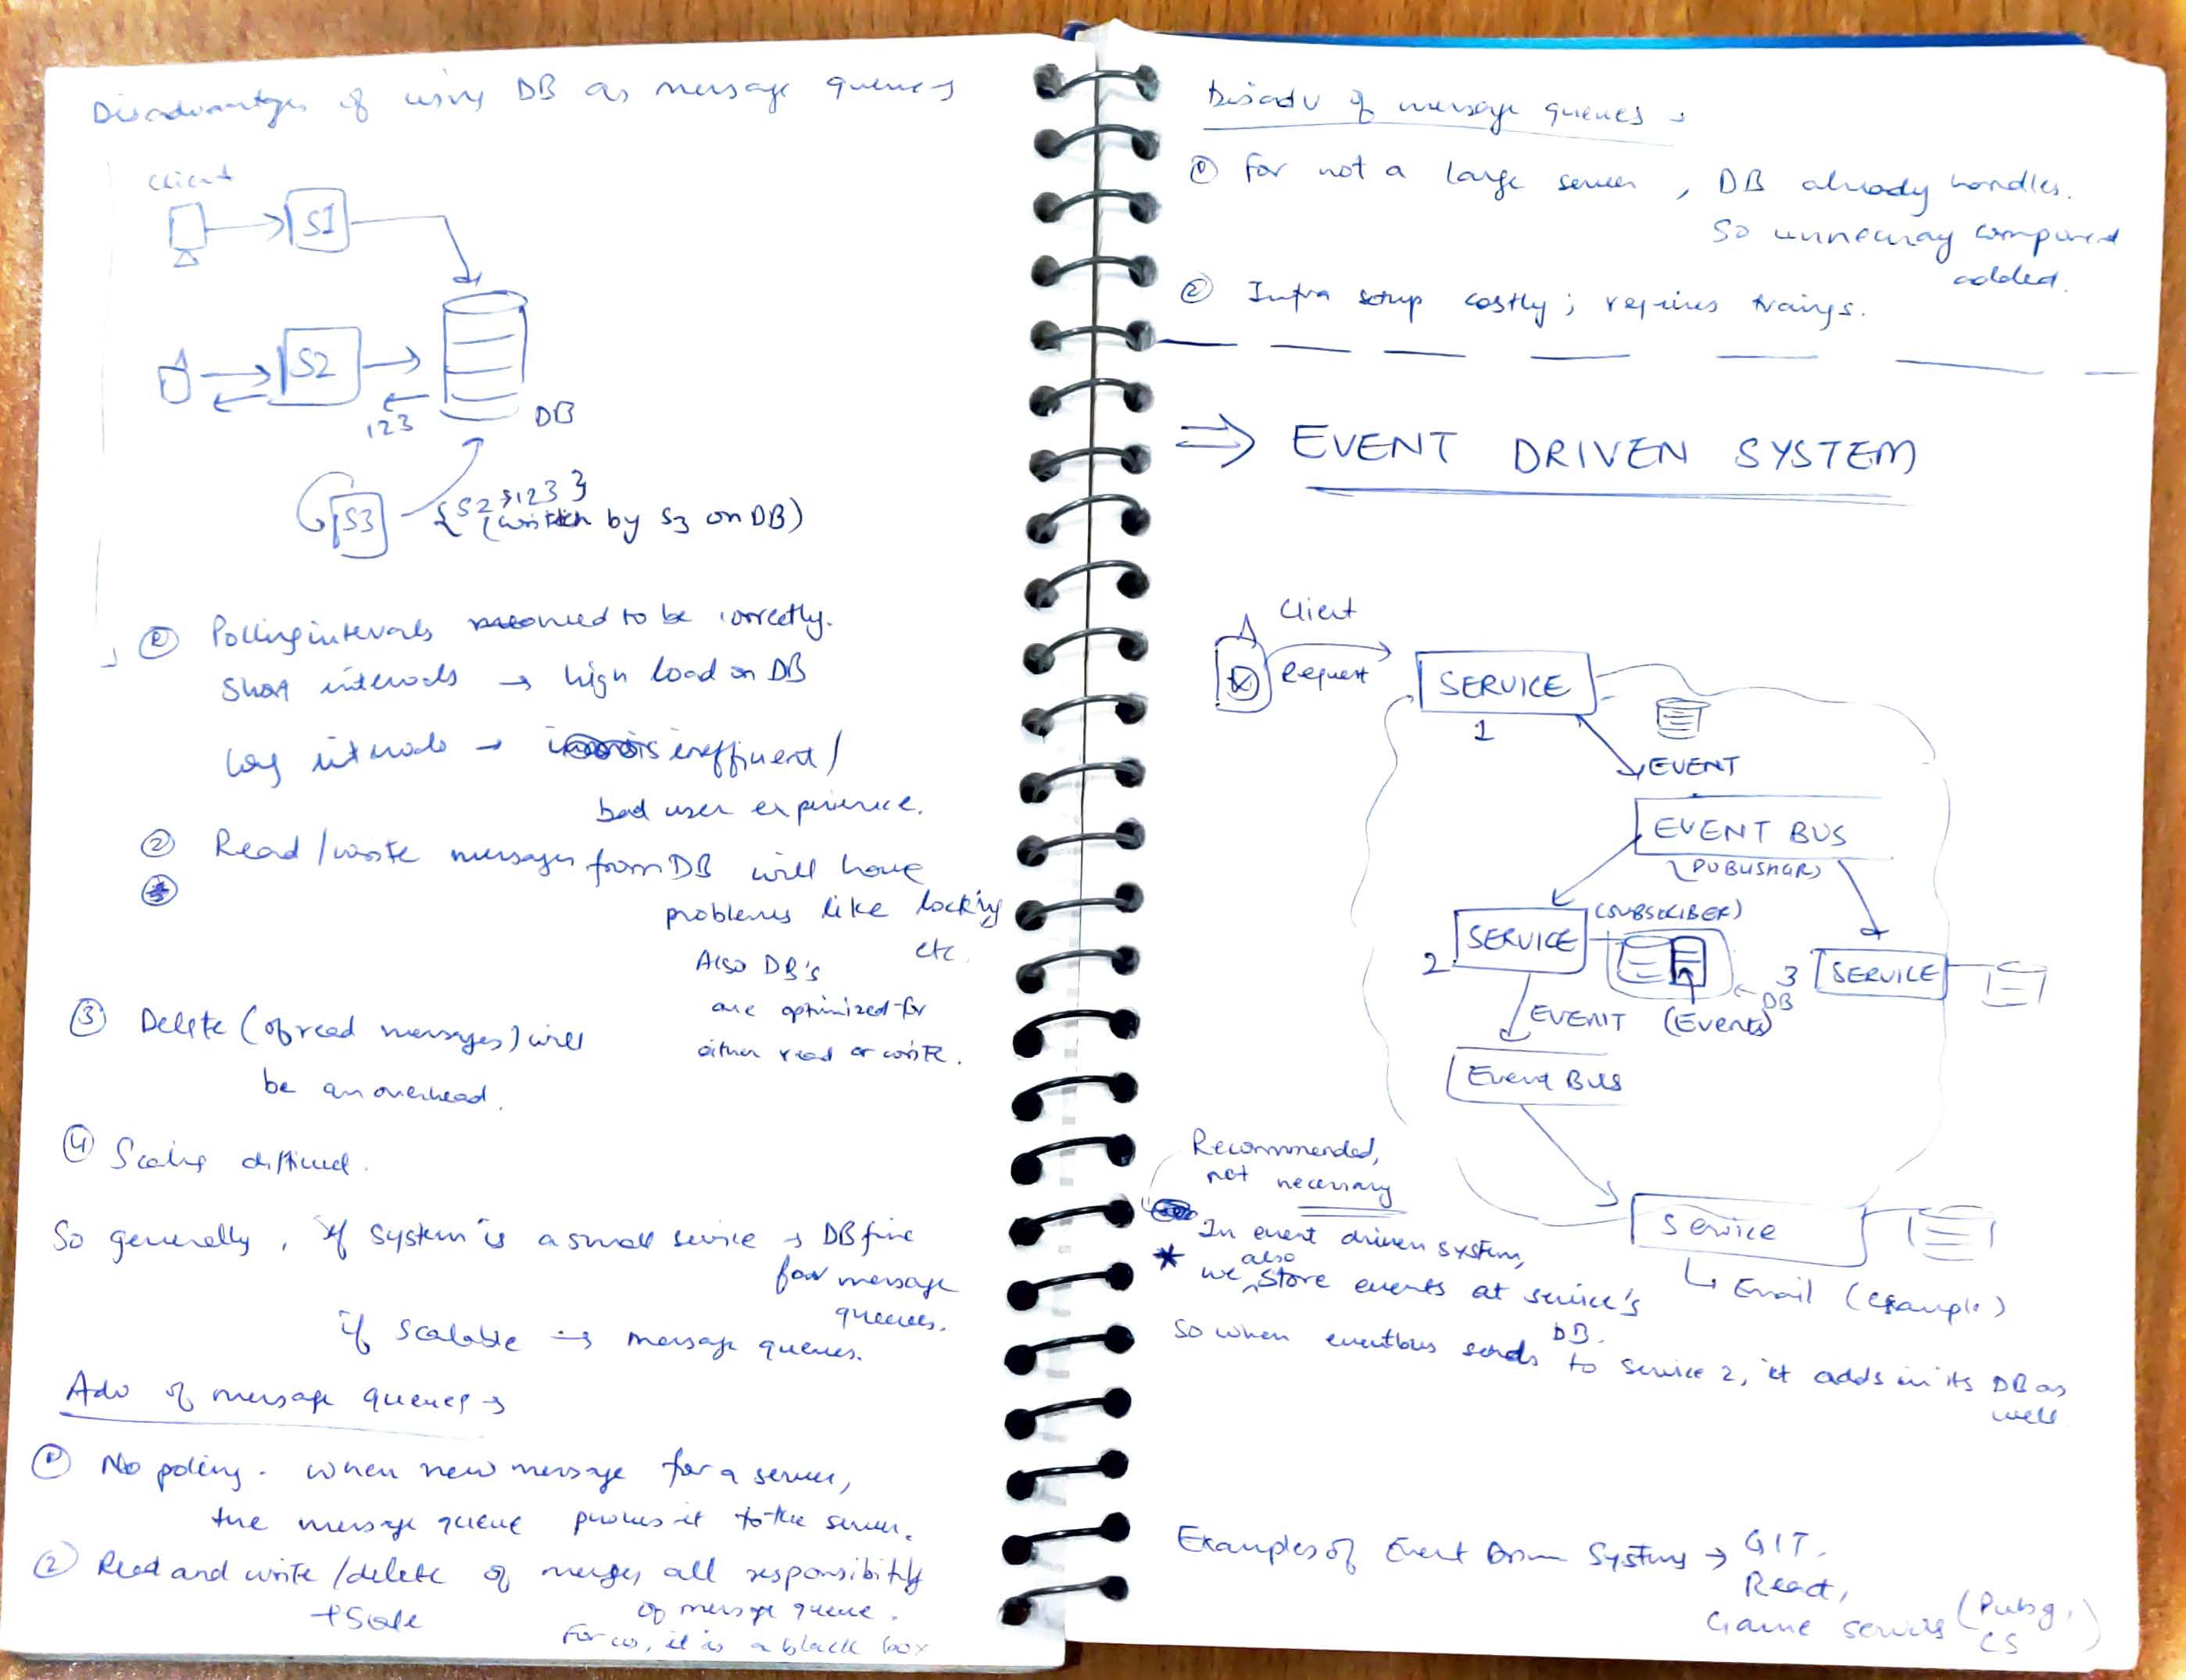 Disadvantages of using DB as message queues
Client
S1
S2
123
DB
S3
{S2 : 123}
(written by S3 on DB)
① Polling intervals need to be correctly.
Short intervals → high load on DB
Long intervals → inefficient /
bad user experience.
② Read/write messages from DB will have
problems like locking
etc.
Also DB's
are optimized for
either read or write.
③ Delete (of read messages) will
be an overhead.
④ Scaling difficult.
So generally, if system is a small service → DB fine
for message
queues.
if scalable → message queues.
Adv of message queues →
① No polling. When new message for a server,
the message queue pushes it to the server.
② Read and write/delete of messages all responsibility
+ Scale
of message queue.
For us, it is a black box
Disadv of message queues →
① For not a large server, DB already handles.
So unnecessary component
added.
② Infra setup costly; requires trainings.
⇒ EVENT DRIVEN SYSTEM
Client
Request
SERVICE
1
EVENT
EVENT BUS
(PUBLISHER)
(SUBSCRIBER)
SERVICE
2
3
SERVICE
DB
EVENT
(Events)
Event Bus
Service
↳ Email (example)
Recommended,
not necessary
* In event driven system,
we also store events at service's
DB.
So when eventbus sends to service 2, it adds in its DB as
well
Examples of Event Driven Systems → GIT,
React,
Game servers (Pubg,
CS)